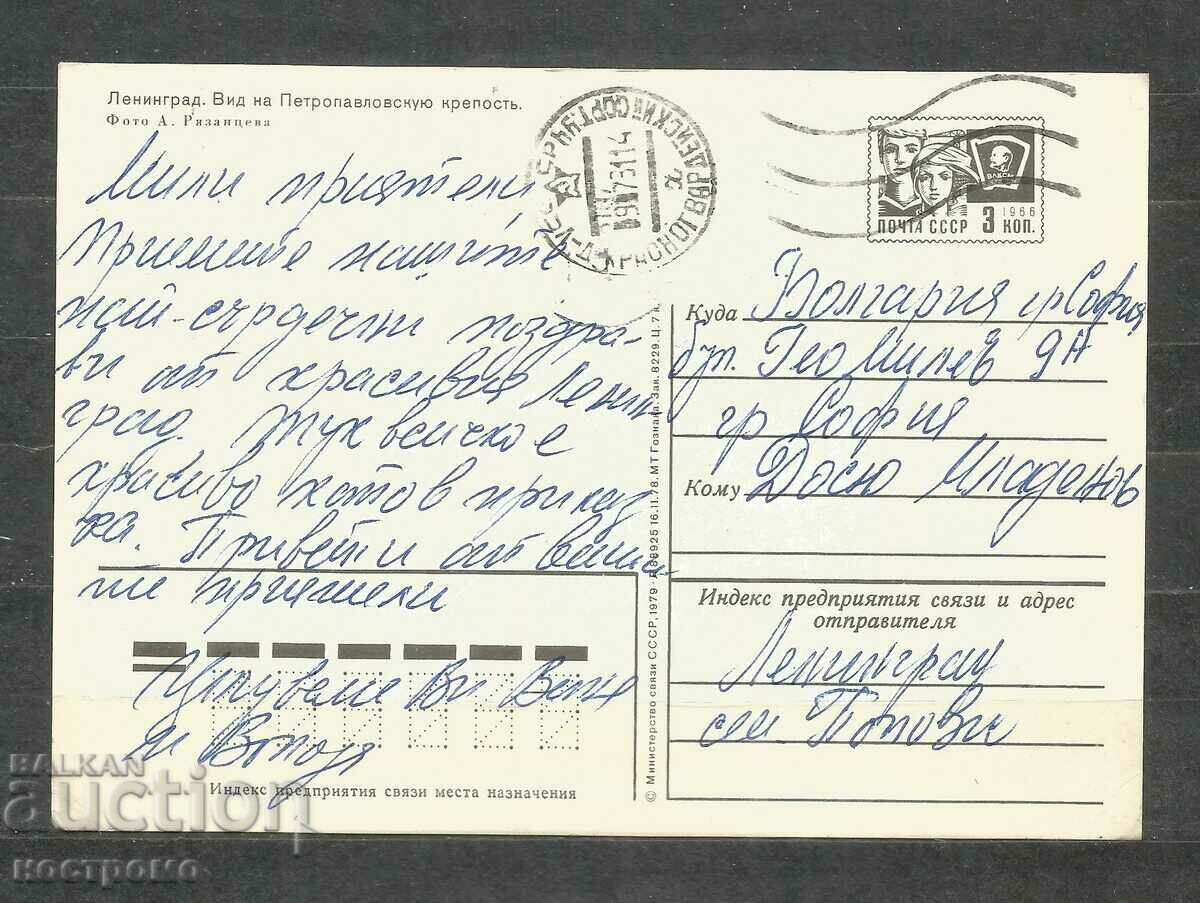 Ленинград. Вид на Петропавловскую крепость.
Фото А. Рязанцева
Мили приятели
Приемете нашите
най-сърдечни поздра-
ви от красивия Ленин
град. Тук всичко е
красиво като в приказ
ка. Привети от ваши
те приятели
Целуваме Ви Ваня
и
КРАСНОГВАРДЕЙСКИЙ СОРТ. УЧ
ВЛКСМ
1966
ПОЧТА СССР 3 КОП.
Куда България гр София
бул. Гео Милев 9А
гр София
Кому Досю Младенов
Индекс предприятия связи и адрес
отправителя
Ленинград
сем Попови
Индекс предприятия связи места назначения
© Министерство связи СССР, 1979 16.11.78. МТ Гознака. Зак. 8229. Ц. 7 к.
BALKAN
auction
костромо